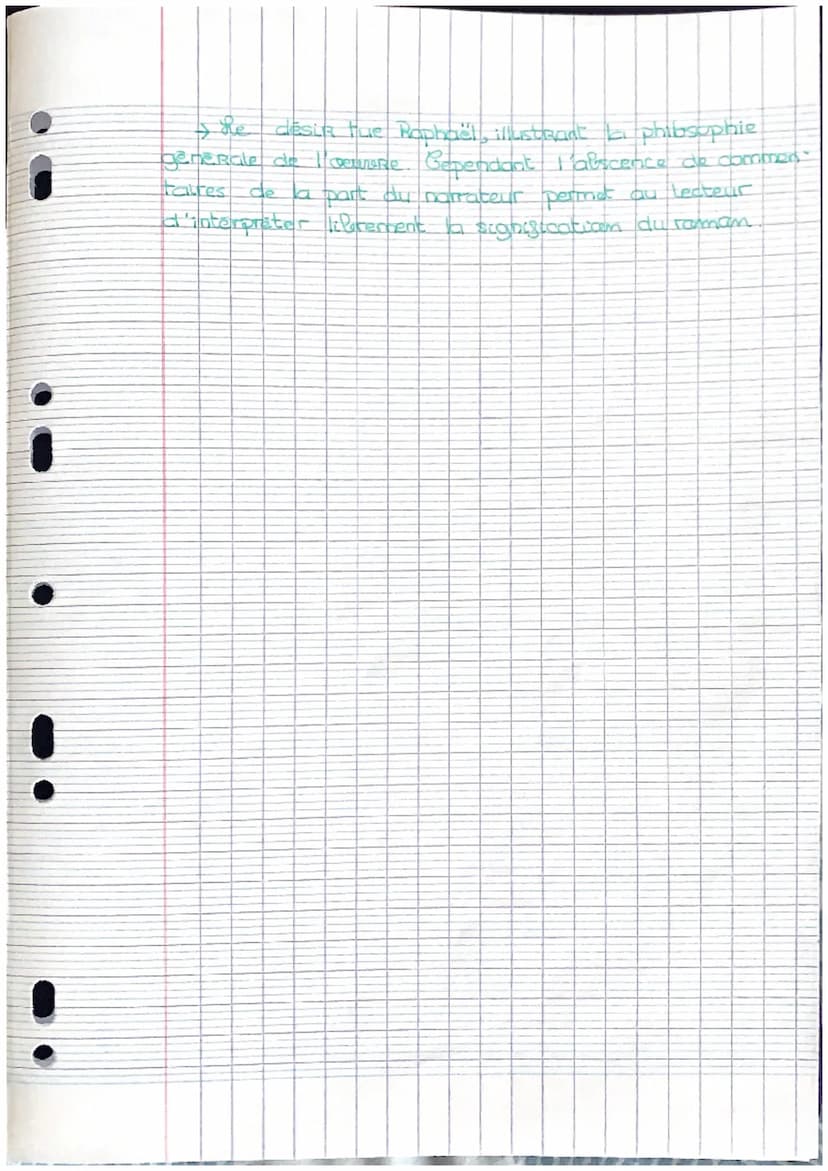 → Le désir tue Raphaël, illustrant la philosophie
générale de l'oeuvre. Cependant l'abscence de commen-
taires de la part du narrateur permet au lecteur
d'interpréter librement la signification du roman.